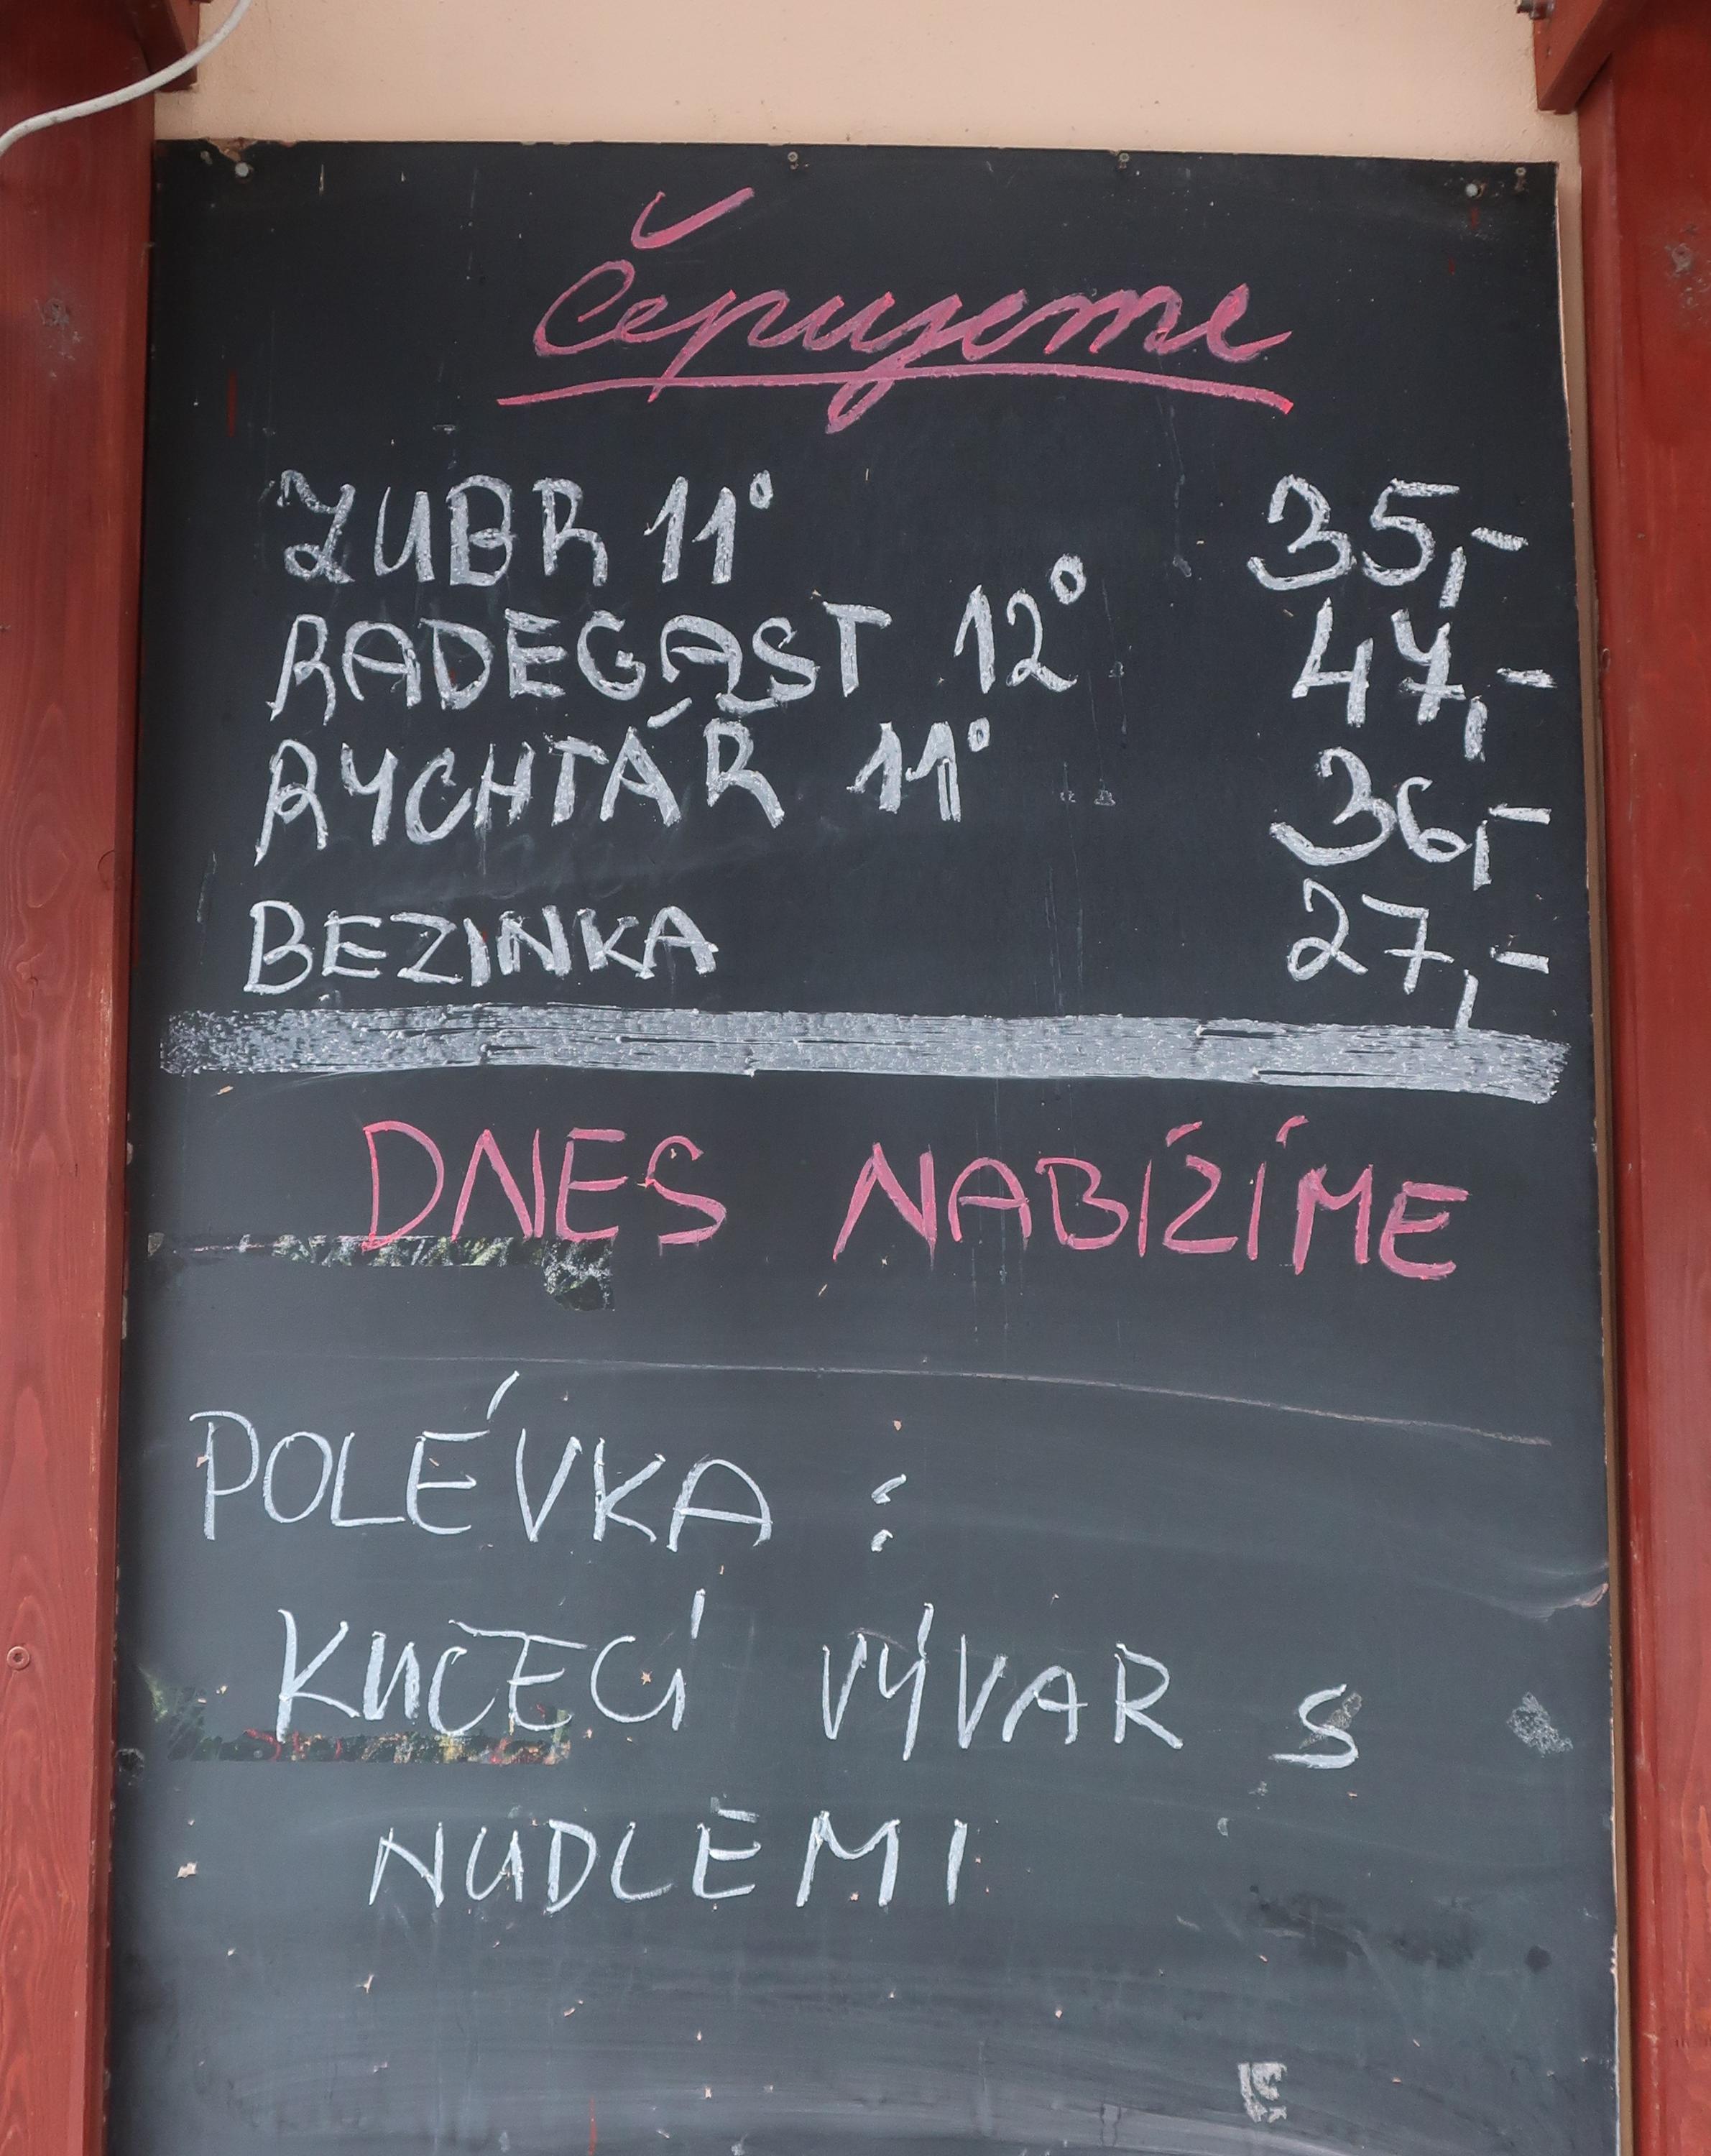 Čepujeme
ZUBR 11° 35,-
RADEGAST 12° 47,-
RYCHTÁR 11° 36,-
BEZINKA 27,-
DNES NABÍZÍME
POLÉVKA :
KUČECÍ VÝVAR S
NUDLEMI